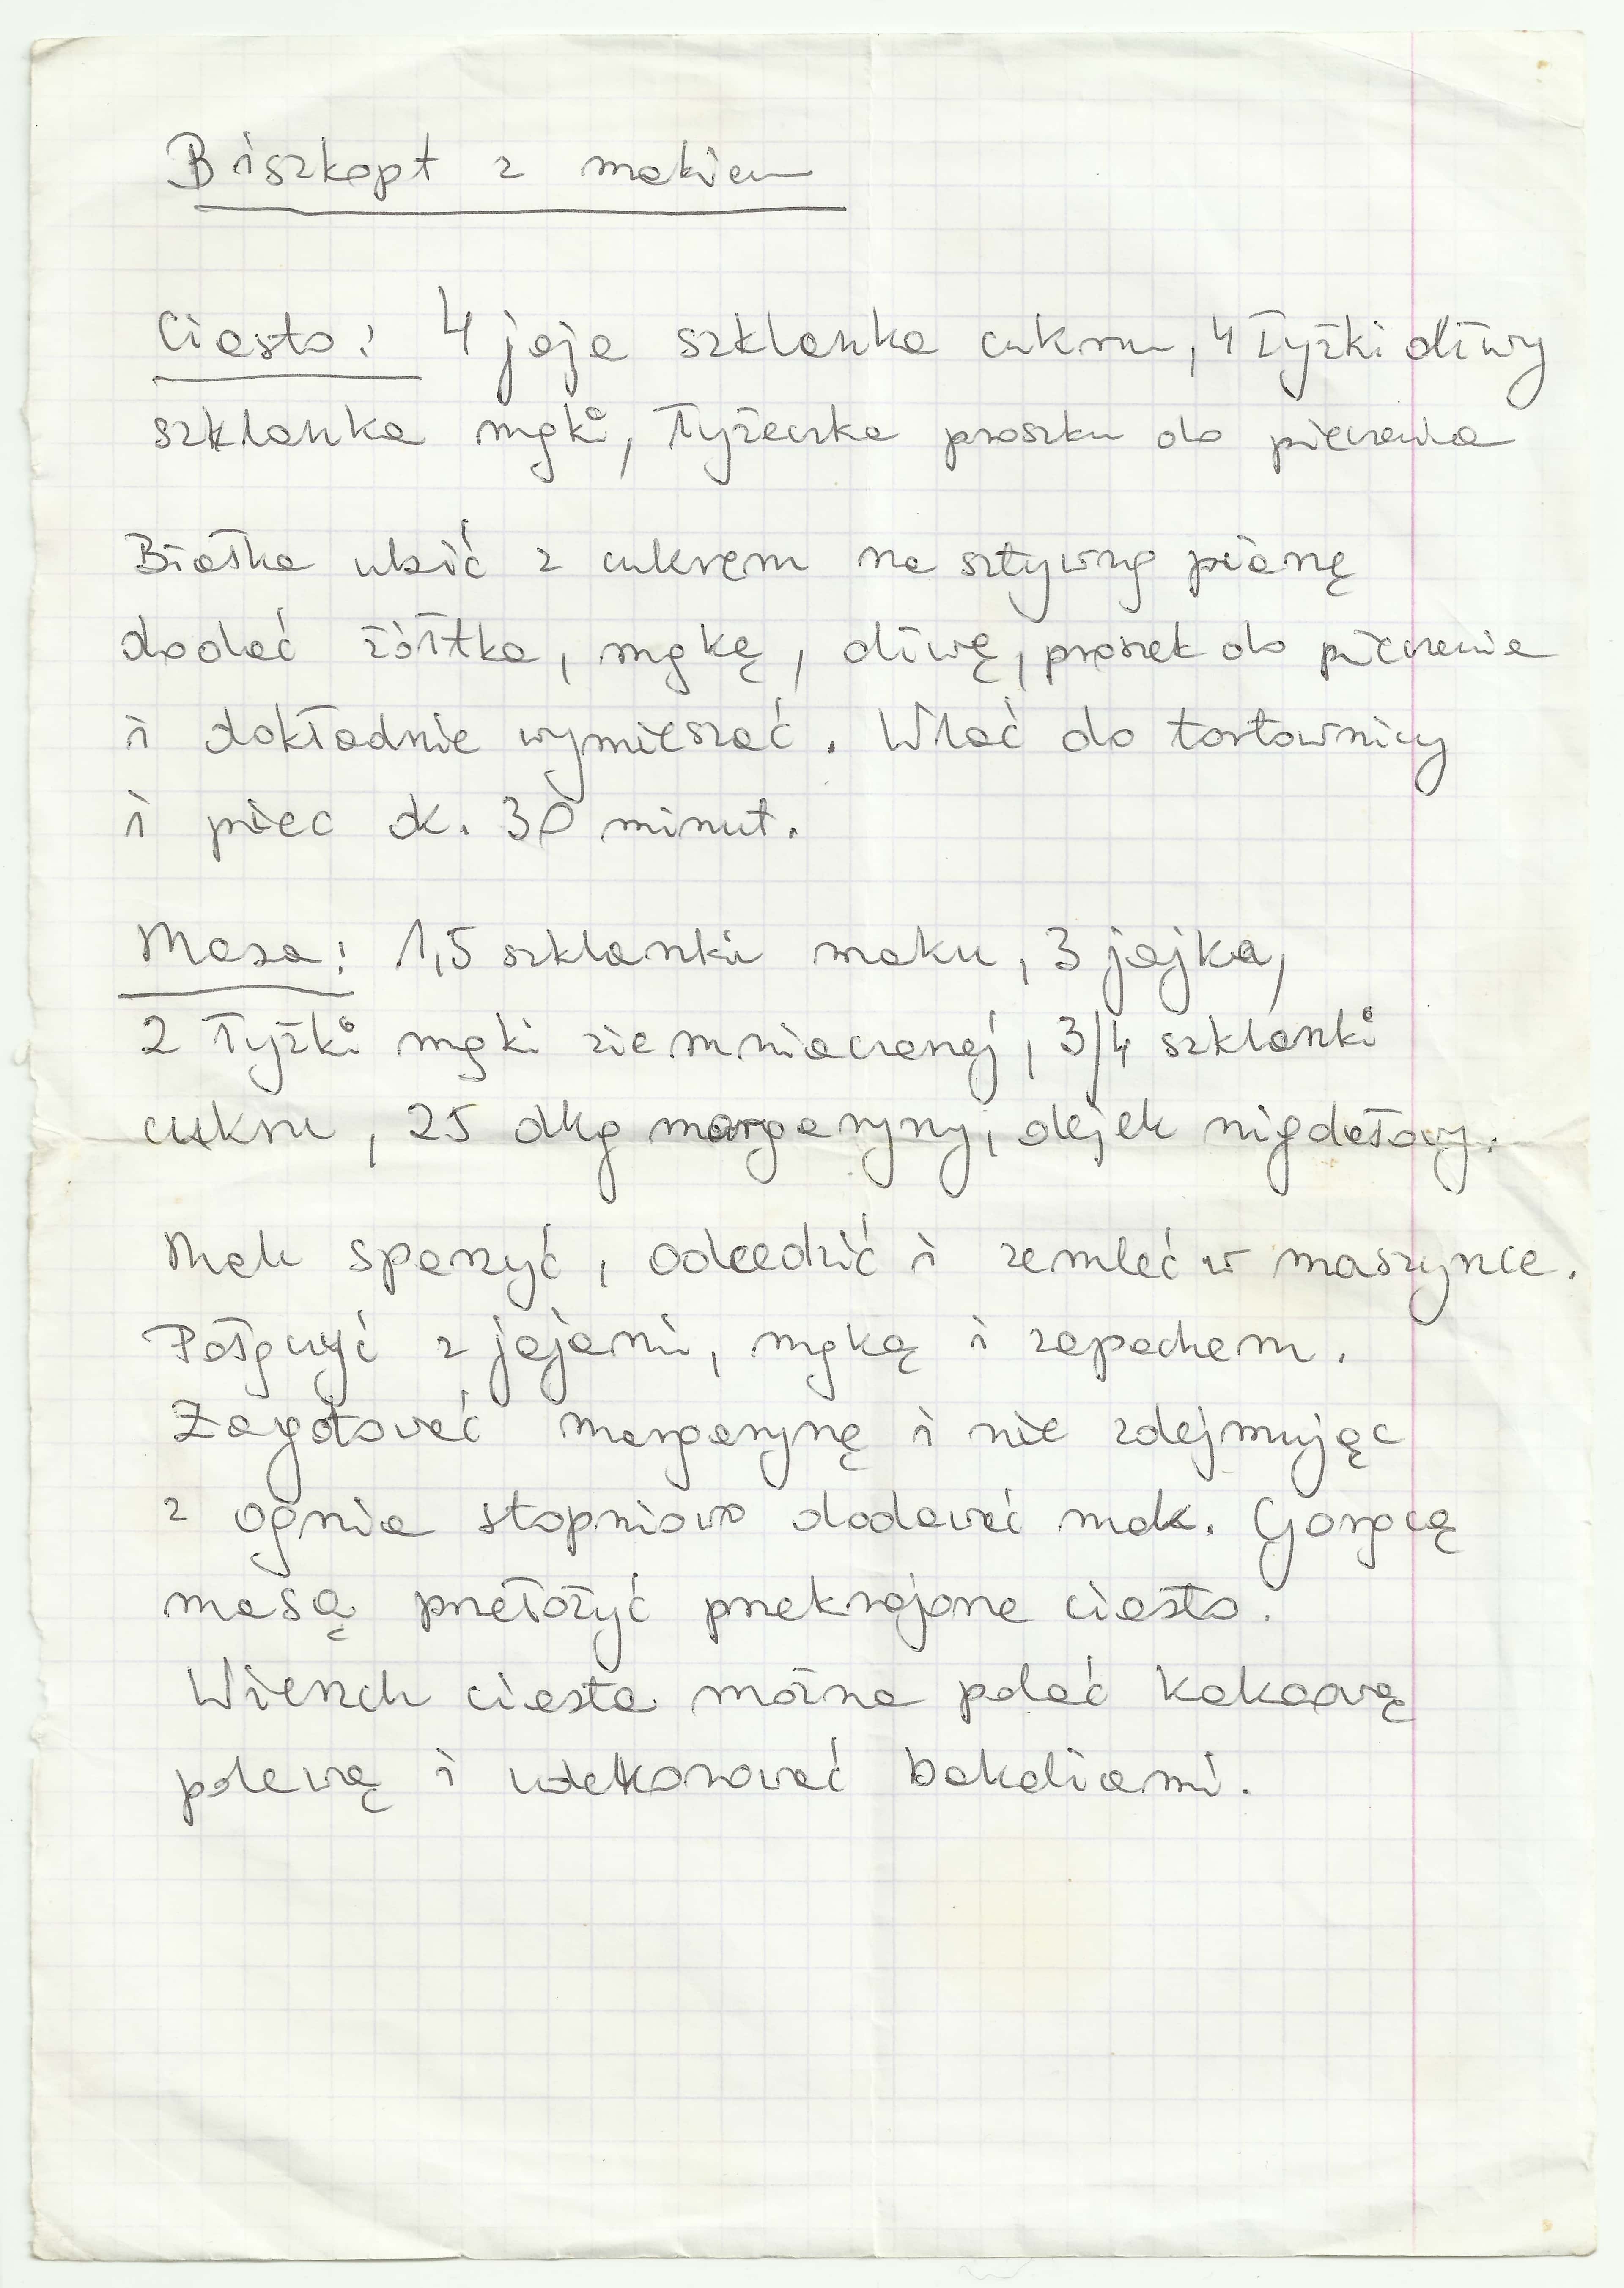 Biszkopt z makiem
Ciasto: 4 jaja szklanka cukru, 4 łyżki oliwy
szklanka mąki, łyżeczka proszku do pieczenia
Białka ubić z cukrem na sztywną pianę
dodać żółtka, mąkę, oliwę, proszek do pieczenia
i dokładnie wymieszać. Wlać do tortownicy
i piec ok. 30 minut.
Masa: 1,5 szklanki maku, 3 jajka,
2 łyżki mąki ziemniaczanej, 3/4 szklanki
cukru, 25 dkg margaryny, olejek migdałowy.
Mak sparzyć, odcedzić i zemleć w maszynce.
Połączyć z jajami, mąką i zapachem.
Zagotować margarynę i nie zdejmując
z ognia stopniowo dodawać mak. Gorącą
masą przełożyć przekrojone ciasto.
Wierzch ciasta można polać kakaową
polewą i udekorować bakaliami.